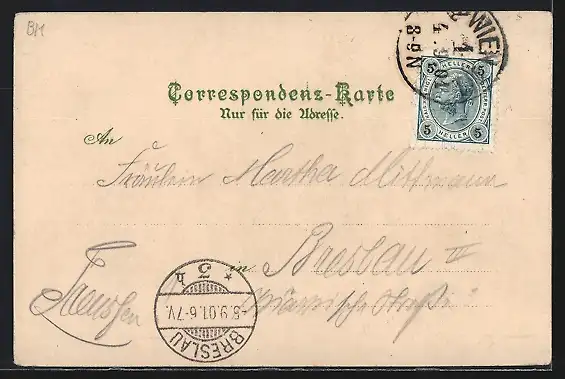 BM
WIEN
8-9N
5 5
HELLER
5 5
HELLER
Correspondenz-Karte
Nur für die Adresse.
An
Fräulein Martha Mittmann
in Breslau II
Preussen
BRESLAU
-5.9.01.6-7V.
* 5 h